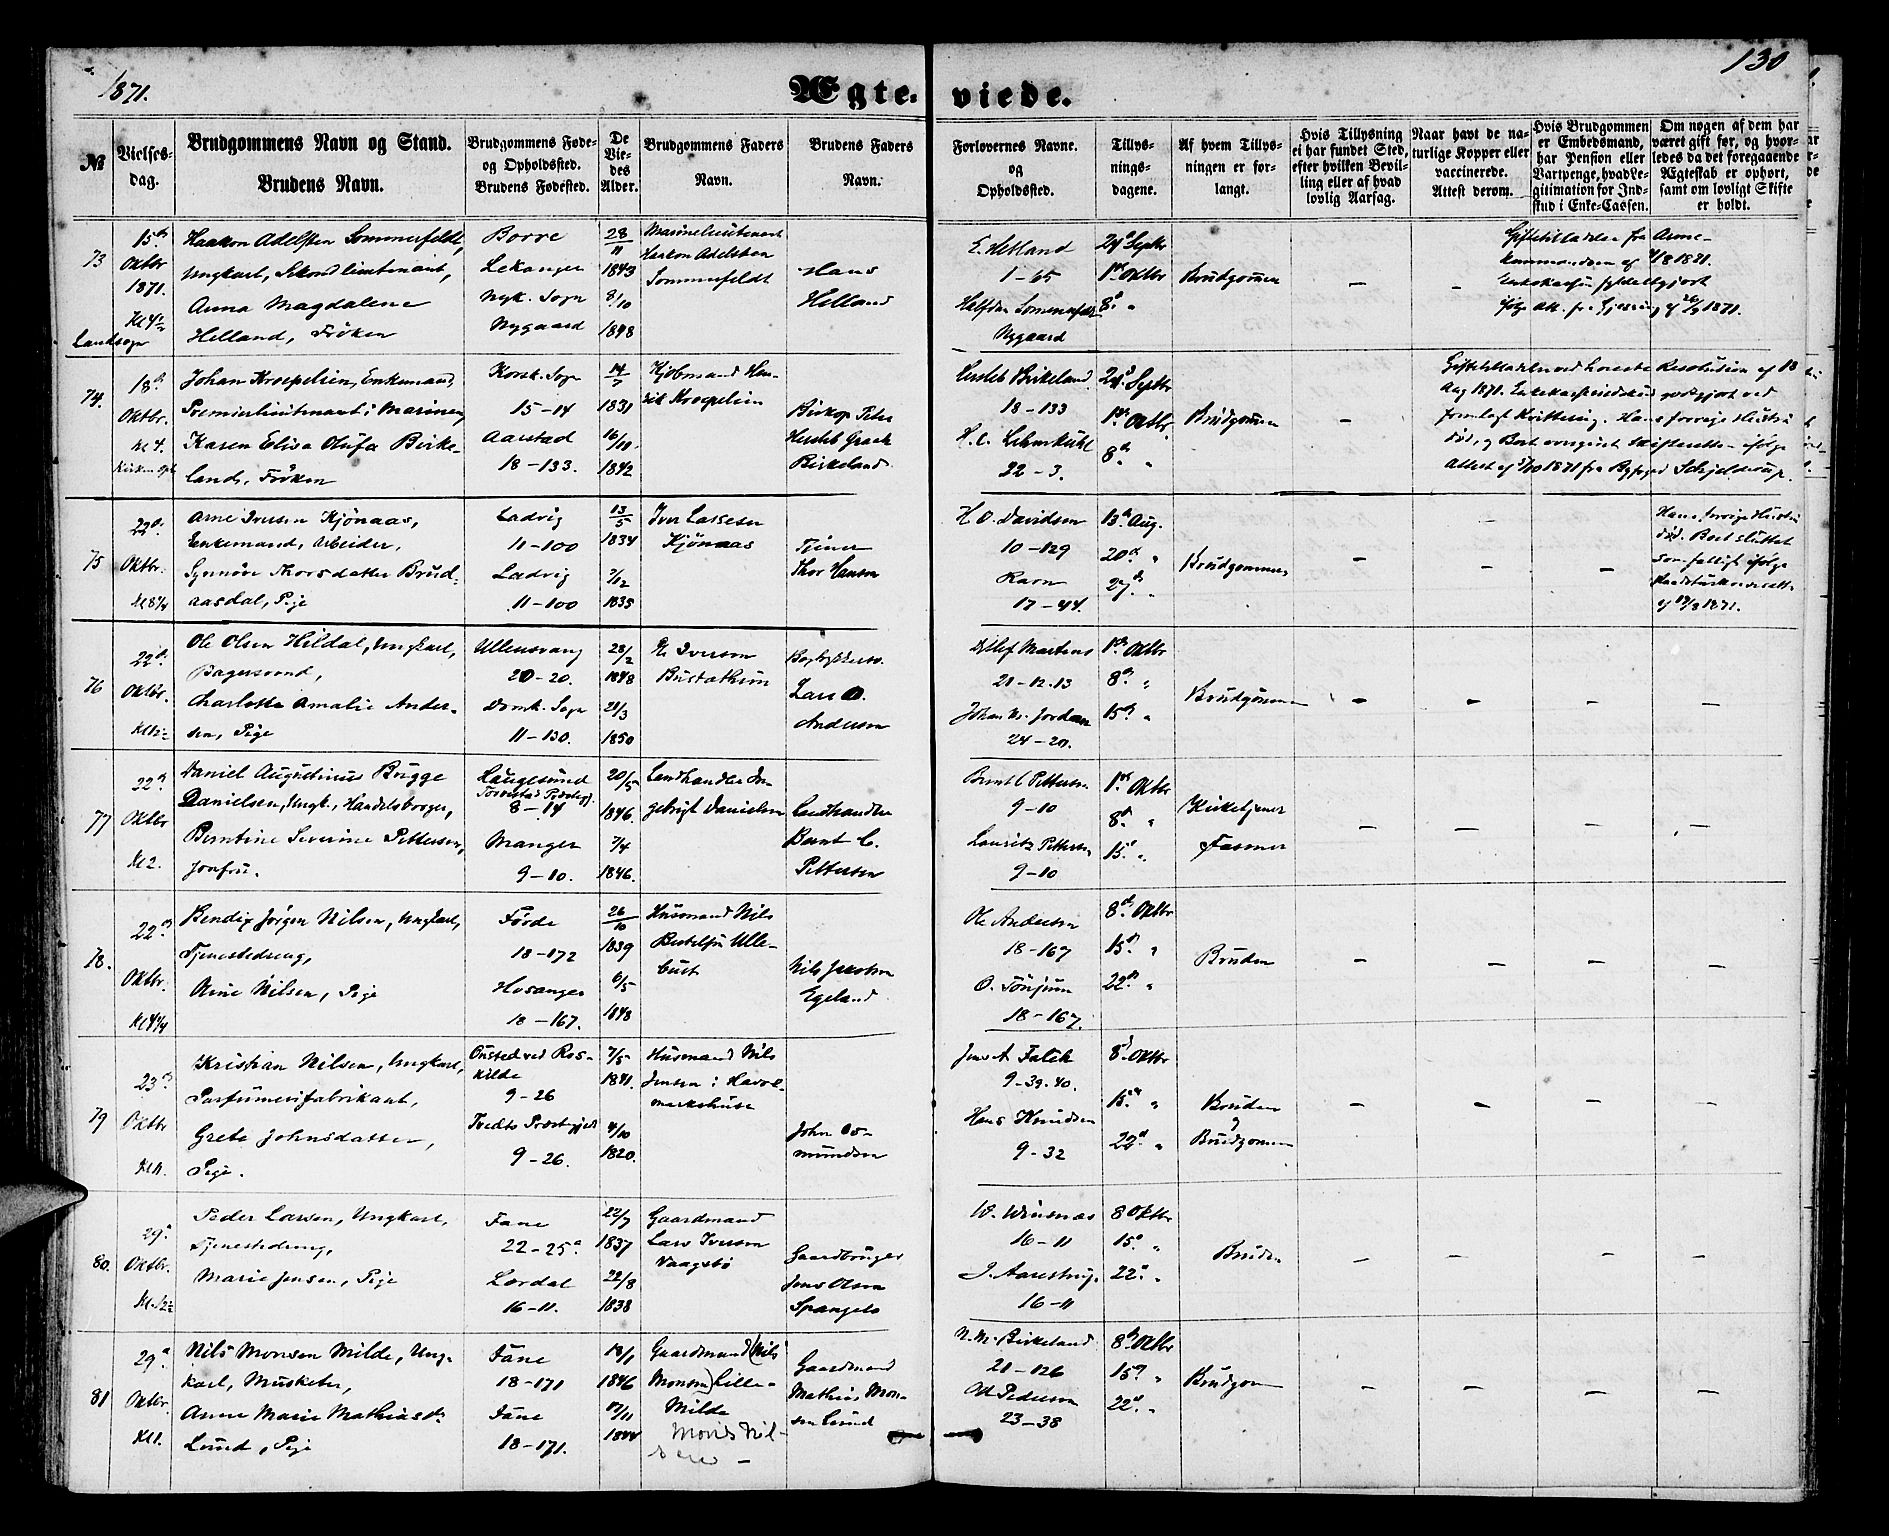 1871.
Ægte-viede.
130
№
Vielses-dag.
Brudgommens Navn og Stand.
Brudens Navn.
Brudgommens Føde- og Opholdssted.
Brudens Fødested.
De Viedes Alder.
Brudgommens Faders Navn.
Brudens Faders Navn.
Forlovernes Navne. og Opholdssted.
Tillysningsdagene.
Af hvem Tillysningen er forlangt.
Hvis Tillysning ei har fundet Sted, efter hvilken Bevilling eller af hvad lovlig Aarsag.
Naar havt de naturlige Kopper eller vaccinerede. Attest derom.
Hvis Brudgommen er Embedsmand, har Pension eller Vartpenge, hvad Legitimation for Indskud i Enke-Cassen.
Om nogen af dem har været gift før, og hvorledes da det foregaaende Ægteskab er ophørt, samt om lovligt Skifte er holdt.
73
15de Oktbr 1871. Kl 4½
Landsogn
Haakon Adelsten Sommerfeldt,
Ungkarl, Sekondlieutenant,
Anna Magdalene
Helland, Frøken
Borre
Lekanger
Nyk. Sogn
Nygaard
28/11 1843
8/10 1848
Marinelieutenant
Haakon Adelsten
Sommerfeldt
Hans
Helland
E. Hetland
1-65
Halfdan Sommerfeldt
Nygaard
24de Septbr
1ste Oktbr
8de "
Brudgommen
-
-
Giftetilladelse fra Arme-
kommandoen af
74.
18de Oktbr. kl 4.
Johan Kroepelien, Enkemand,
Premierlieutenant i Marinen,
Karen Elisa Olufa Birke-
land, Frøken
Korsk. Sogn
15-14
Aarstad
18-133.
14/7 1831
16/10. 1842
Kjøbmand Hen-
rik Kroepelien
Biskop Peter
Hersleb Graah
Birkeland.
Hersleb Birkeland
18-133
H. C. Lehmkuhl
22-3.
24de Septbr
1ste Oktbr.
8de "
Brudgommen
-
75
22de Oktbr. kl 8¼
Arne Iversen Kjønaas,
Enkemand, Arbeider,
Synnøve Thorsdatter Brud-
aasdal, Pige
Ladvig
11-100
Ladvig
11-100
13/5 1834
7/12 1835
Iver Lassesen
Kjønaas
Tjener
Thor Hansen
H. O. Davidsen
10-129
Ravn
17-44.
13de Aug.
20de "
27de "
Brudgommen
-
-
-
Hans forrige Hustru
død. Boet sluttet
76
22de Oktbr.
Ole Olsen Hildal, Ungkarl,
Bagersvend,
Charlotte Amalie Ander-
sen, Pige
Ullensvang
20-20.
Domk. Sogn
11-130.
28/2 1848
21/3 1850
Ole Iverson
Lars O.
Andersen
Ditlef Martens
21-12.13
Johan Kr. Jordan
24-20.
1ste Oktbr
8de "
15de "
Brudgommen
-
-
-
-
77
22de Oktbr kl 2.
Daniel Augustinus Brugge
Danielsen, Ungk, Handelsborger,
Berntine Severine Pettersen,
Jomfru.
Haugesund
8-14
Manger
9-10.
20/5 1846.
7/4 1846.
Landhandler In-
gebrigt Danielsen
Landhandler
Bernt C.
Pettersen
Bernt C Pettersen
9-10
Lauritz Pettersen
9-10
1ste Oktbr
8de "
15de "
Kirketjener
Fasmer
-
-
-
-
78.
22de Oktbr. Kl 4¼
Bendix Jørgen Nilsen, Ungkarl,
Tjenestedreng,
Anne Nilsen, Pige
Førde
18-172
Hosanger
18-167.
26/10 1839
6/5 1848
Husmand Nils
Nils Jacobsen
Egeland
Ole Andersen
18-167
O. Tönjum
18-167.
8de Oktbr
15de "
22de "
Bruden
-
-
-
-
79
23de Oktbr Kl 11.
Kristian Nilsen, Ungkarl,
Parfumerifabrikant,
Grete Johnsdatter,
Pige.
Onsted ved Ros-
kilde
9-26
Tvedte Præstegjeld
9-26.
7/5 1841.
4/10 1820.
Husmand Nils
Jensen i Havre-
markshuse
John Os-
mundsen
Jens A Falck
9-39.40.
Hans Knudsen
9-32
8de Oktbr
15de "
22de "
Bruden
og
Brudgommen
-
-
-
-
80.
29de Oktbr.
Peder Larsen, Ungkarl,
Tjenestedreng,
Marie Jensen, Pige
Fane
22-25a
Lærdal
16-11.
22/7 1837
22/8 1838
Gaardmand
Lars Iverson
Vaagsbø
Gaardbruger
Jens Olsen
Spangelo
W. Winsnæs
16-11
J. Aarestrup
16-11
8 Oktbr
15de "
22de "
Bruden
-
-
-
-
81
29de Oktbr. Kl 1.
Nils Monsen Milde, Ung-
karl, Musketer,
Anne Marie Mathiasdr
Lund, Pige
Fane
18-171
Fane
18-171.
18/1 1846
17/11 1844
Gaardmand (Nils
Monsen) Lille-
Milde
Mons Nil-
sen -
Gaardmand
Mathias Mon-
sen Lund
N. M. Birkeland
21-126
Ole Pederson
23-38
8de Oktbr
15de "
22de "
Brudgom
-
-
-
-